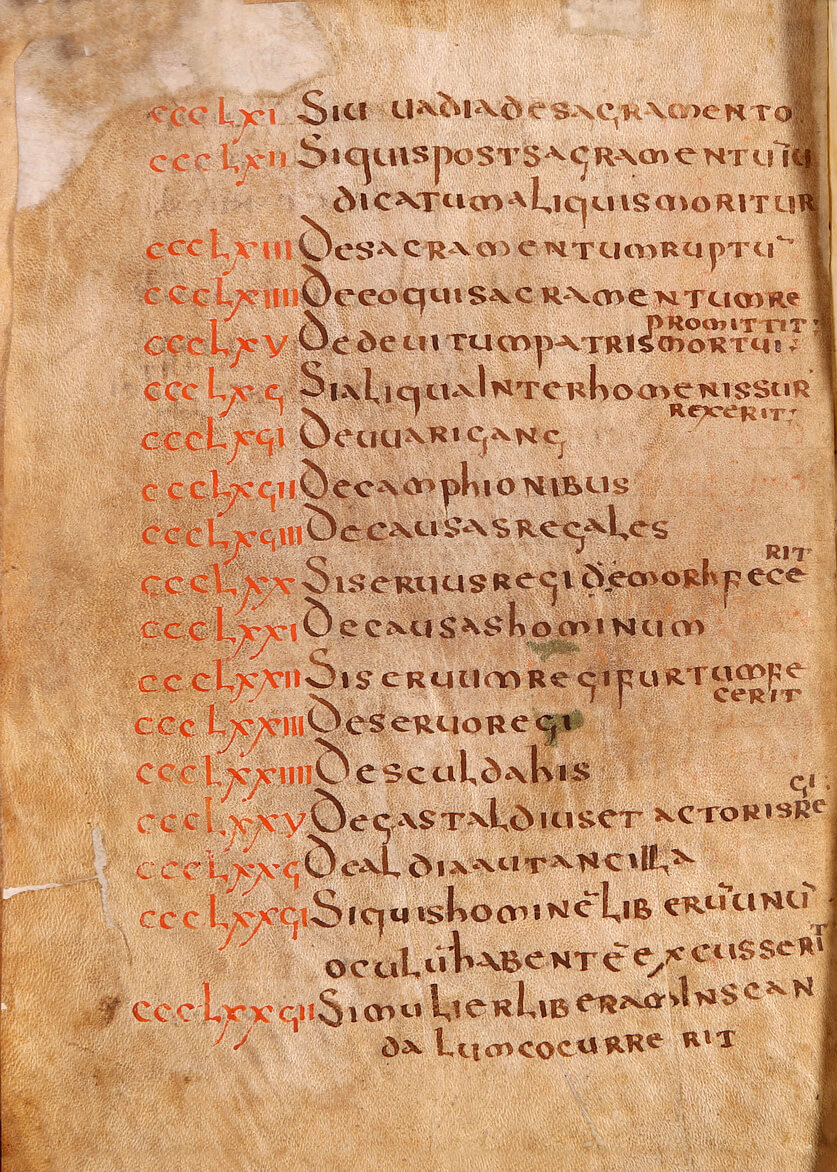 cccLxi Siu uadia de sacramento
cccLxii Si quis post sacramentū iu
dicatum aliquis moritur
cccLxiii De sacramentum ruptū
cccLxiiii De eo qui sacramentum re
promittit;
cccLxv De deuitum patris mortui;
cccLxϛ Si aliqua inter homenis sur
rexerit;
cccLxϛi De uuarigang
cccLxϛii De camphionibus
cccLxϛiii De causas regales
rit
cccLxx Si seruus regi demorh fece
cccLxxi De causas hominum
cccLxxii Si seruum regi furtum fe
cerit
cccLxxiii De seruo regi
cccLxxiiii De sculdahis
gi
cccLxxv De gastaldius et actoris re
cccLxxϛ De aldia aut ancilla
cccLxxϛi Si quis hominē liberū unū
oculū habentē excusserit
cccLxxϛii Si mulier liberam in scan
dalum cocurrerit